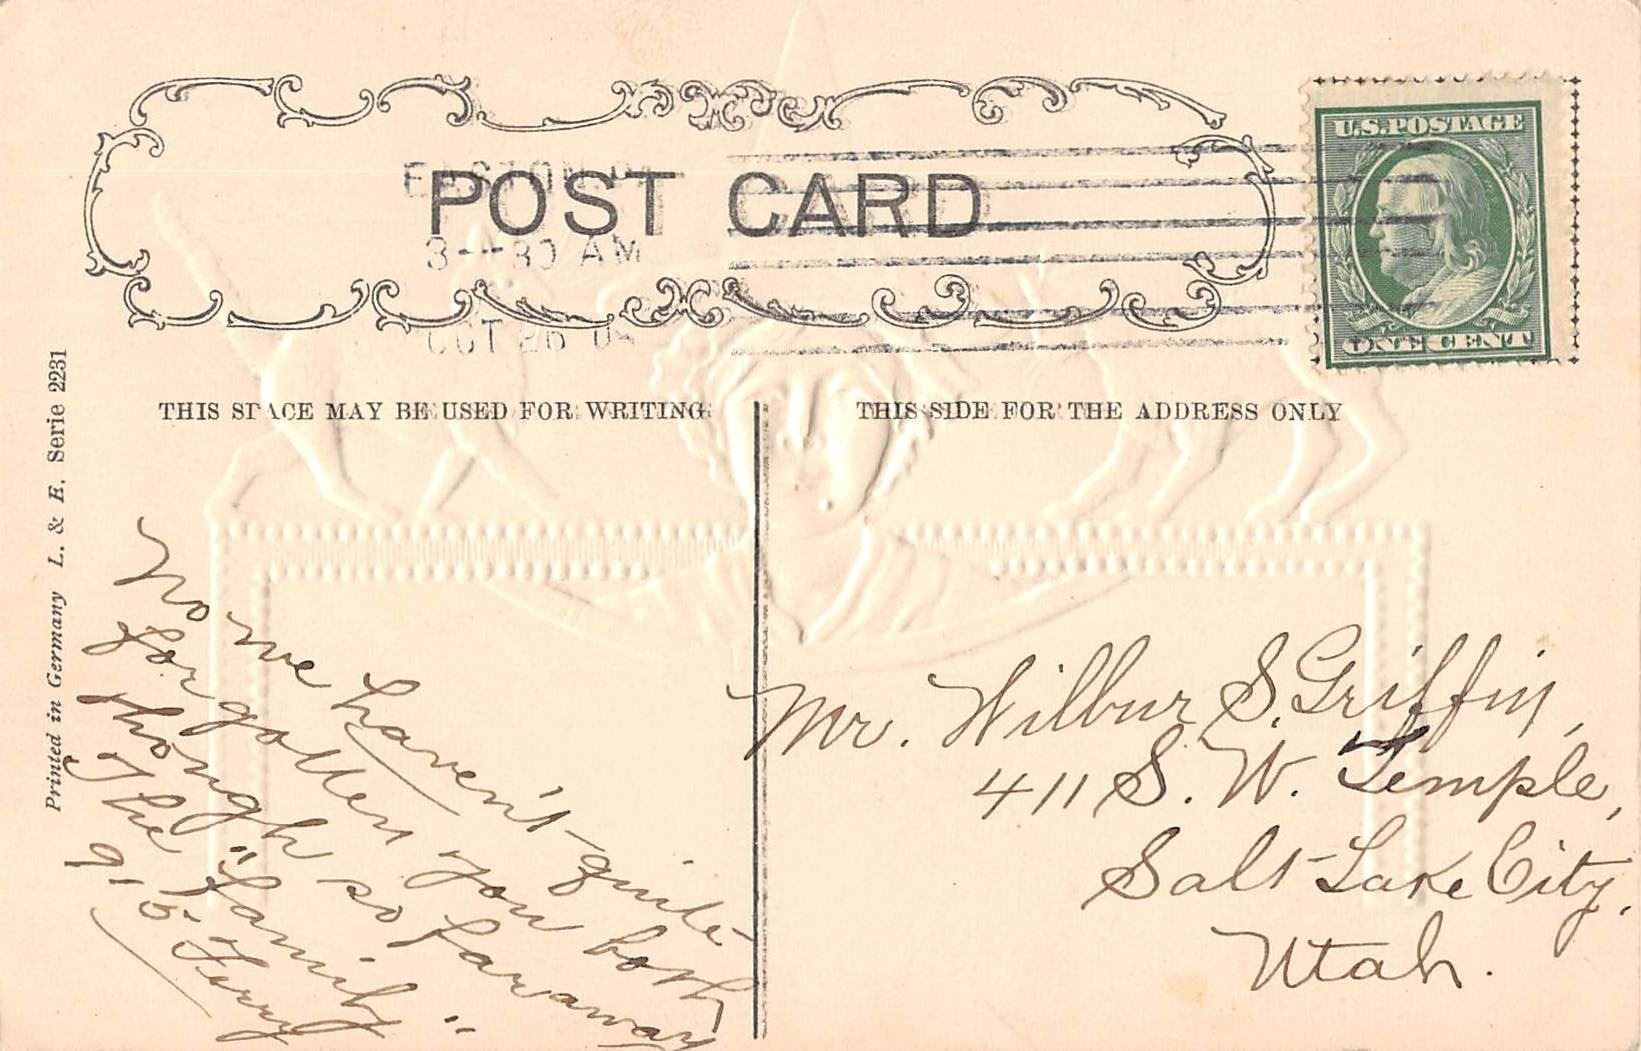 EASTON PA
POST CARD
3--30 AM
OCT 26 0
U.S.POSTAGE
ONE CENT
THIS SPACE MAY BE USED FOR WRITING
THIS SIDE FOR THE ADDRESS ONLY
Printed in Germany L. & E. Serie 2231
No we haven't quite
forgotten you both
though so far away
The "family"
915 Ferry
Mr. Wilbur S. Griffin,
411 S. W. Temple,
Salt Lake City,
Utah.